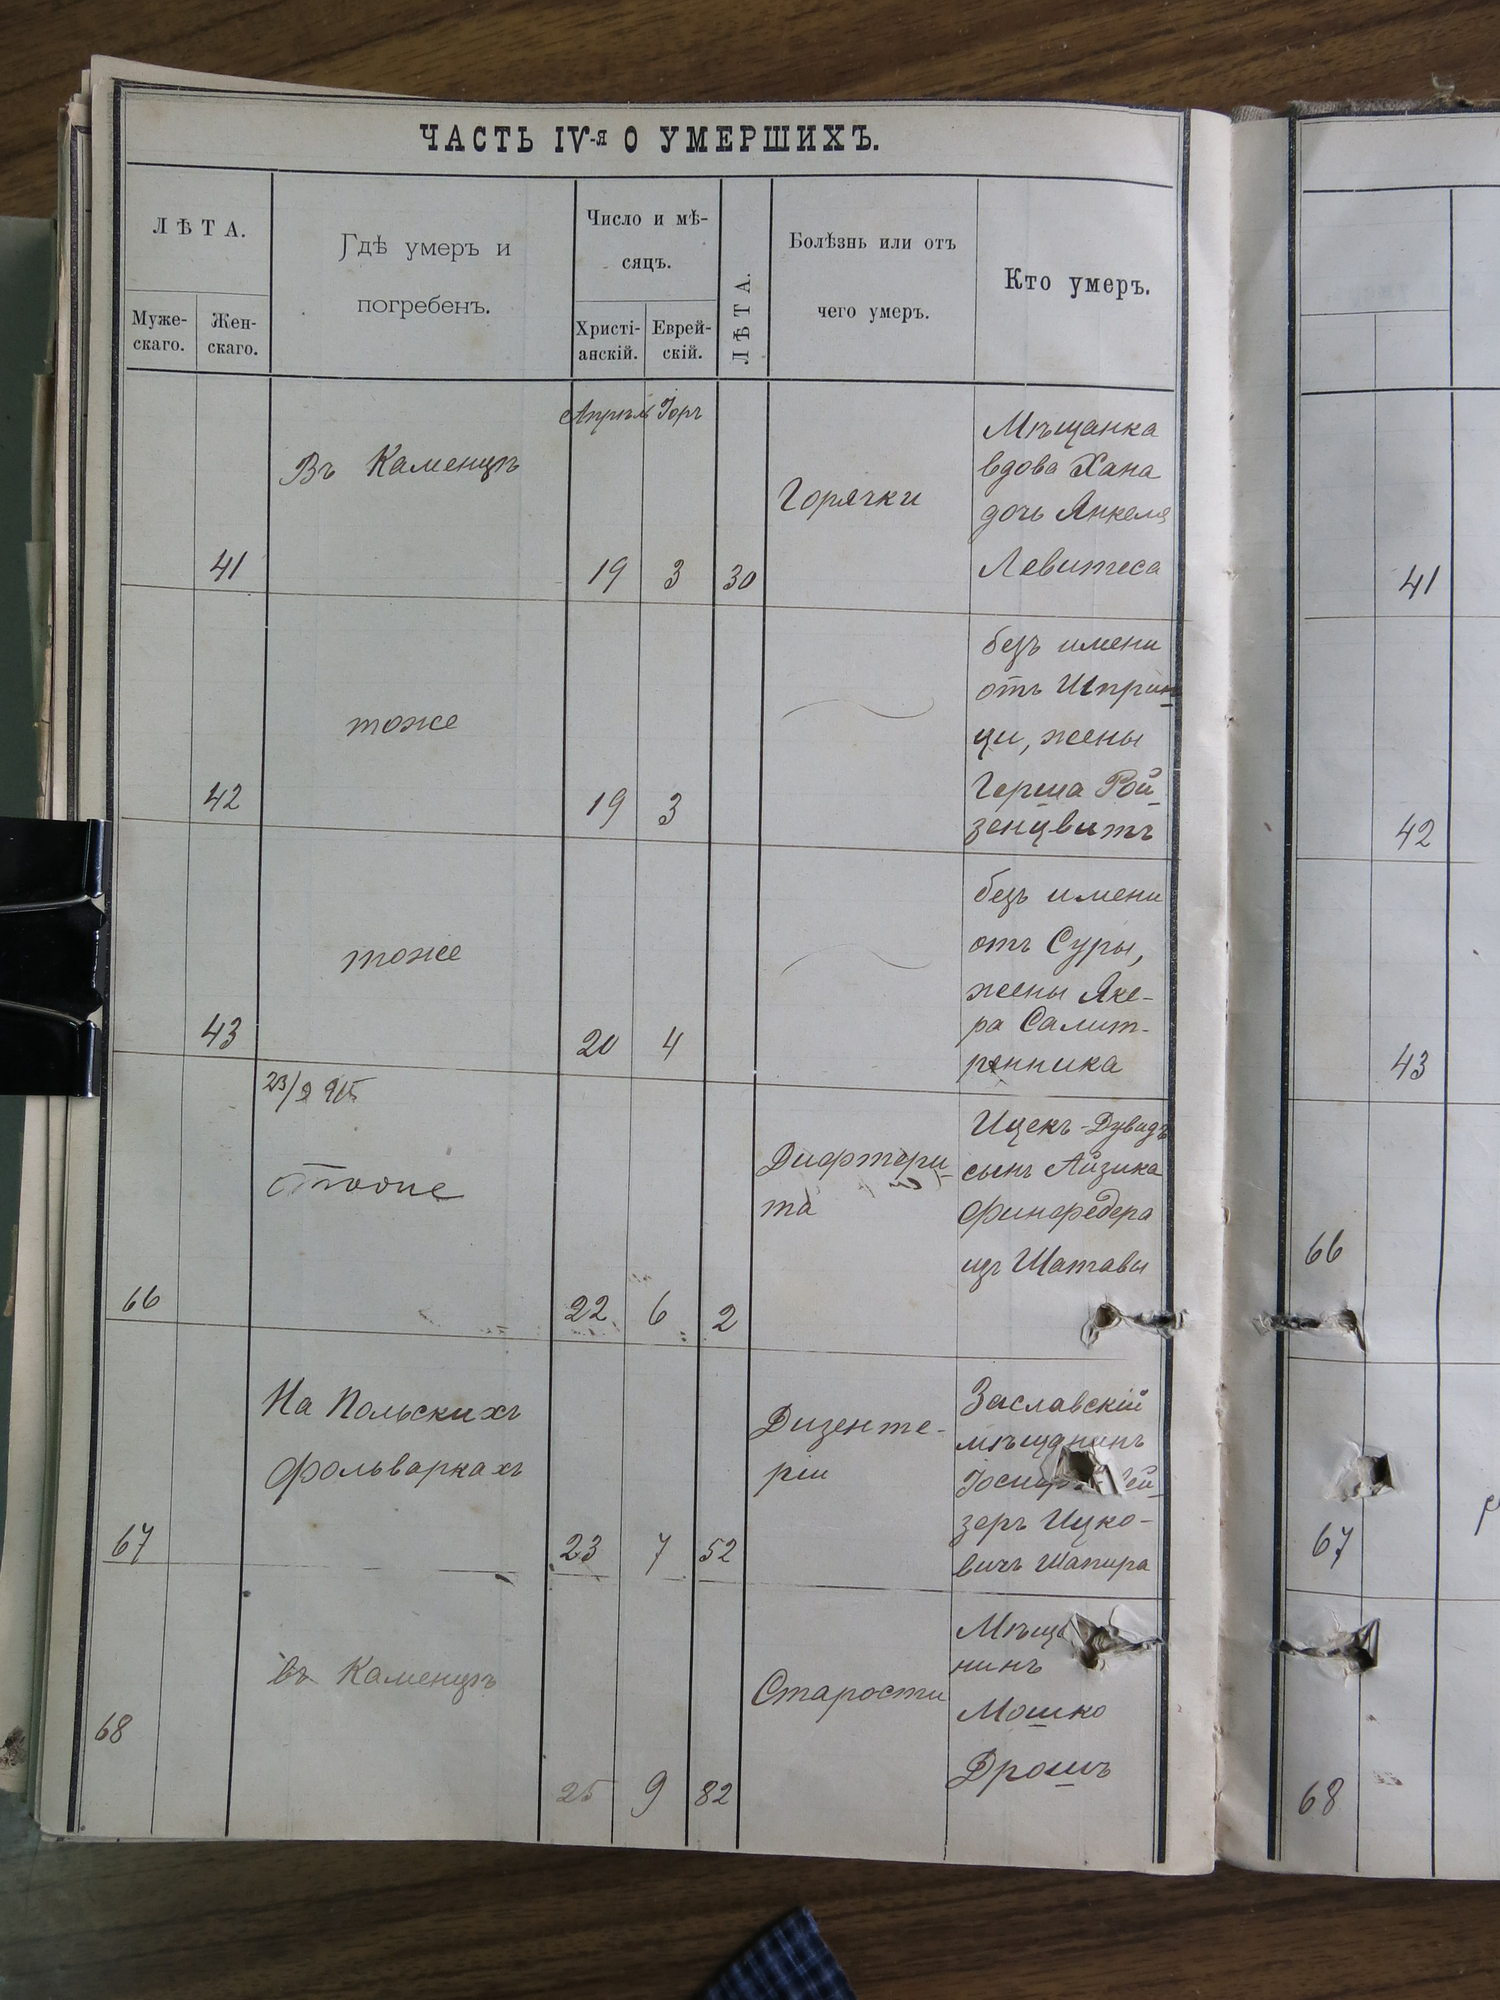 ЧАСТЬ IV-я О УМЕРШИХЪ.
ЛѢТА.
Муже-
скаго.
Жен-
скаго.
Гдѣ умеръ и
погребенъ.
Число и мѣ-
сяцъ.
Христі-
анскій.
Еврей-
скій.
ЛѢТА.
Болѣзнь или отъ
чего умеръ.
Кто умеръ.
Апрѣль
Въ Каменцѣ
41
19
3
30
Горячки
Мѣщанка
вдова Хана
дочь Янкеля
Левитеса
41
тоже
42
19
3
безъ имени
отъ Шприн
ци, жены
Герша Рой-
зенцвитъ
42
тоже
43
20
4
безъ имени
отъ Суры,
жены Яке-
ра Салит-
ренника
43
тоже
66
22
6
2
Дифтери-
та
Ицекъ-Дувидъ
сынъ Айзика
Финфедера
изъ Шатавы
66
На Польскихъ
фольваркахъ
67
23
7
52
Дизенте-
ріи
Заславскій
мѣщанинъ
зеръ Ицко-
вичъ Шапира
67
въ Каменцѣ
68
25
9
82
Старости
нинъ
Мошко
Дрошъ
68